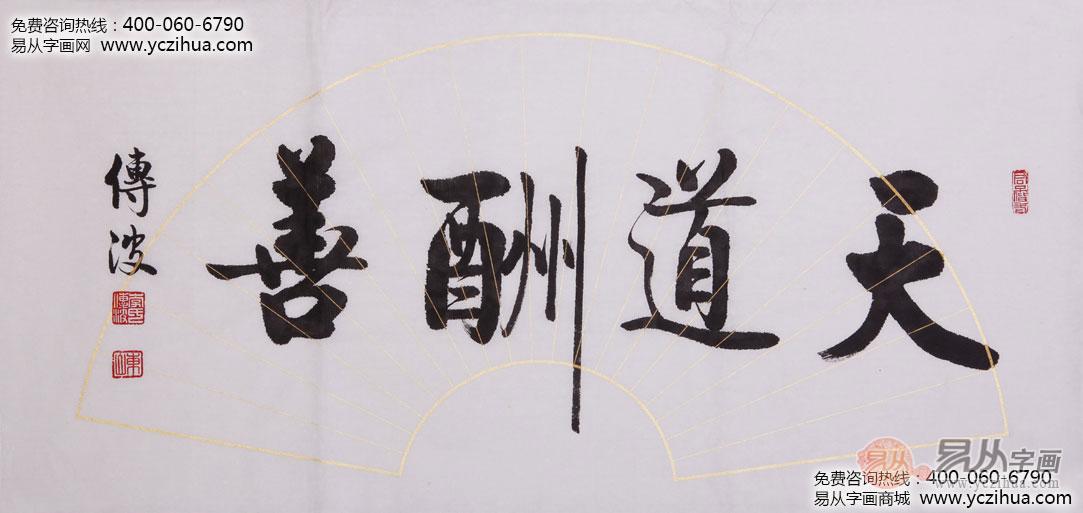 免费咨询热线：400-060-6790
易从字画网 www.yczihua.com
天道酬善
傳波
易从
易从字画
www.yczihua.com
免费咨询热线：400-060-6790
易从字画商城 www.yczihua.com